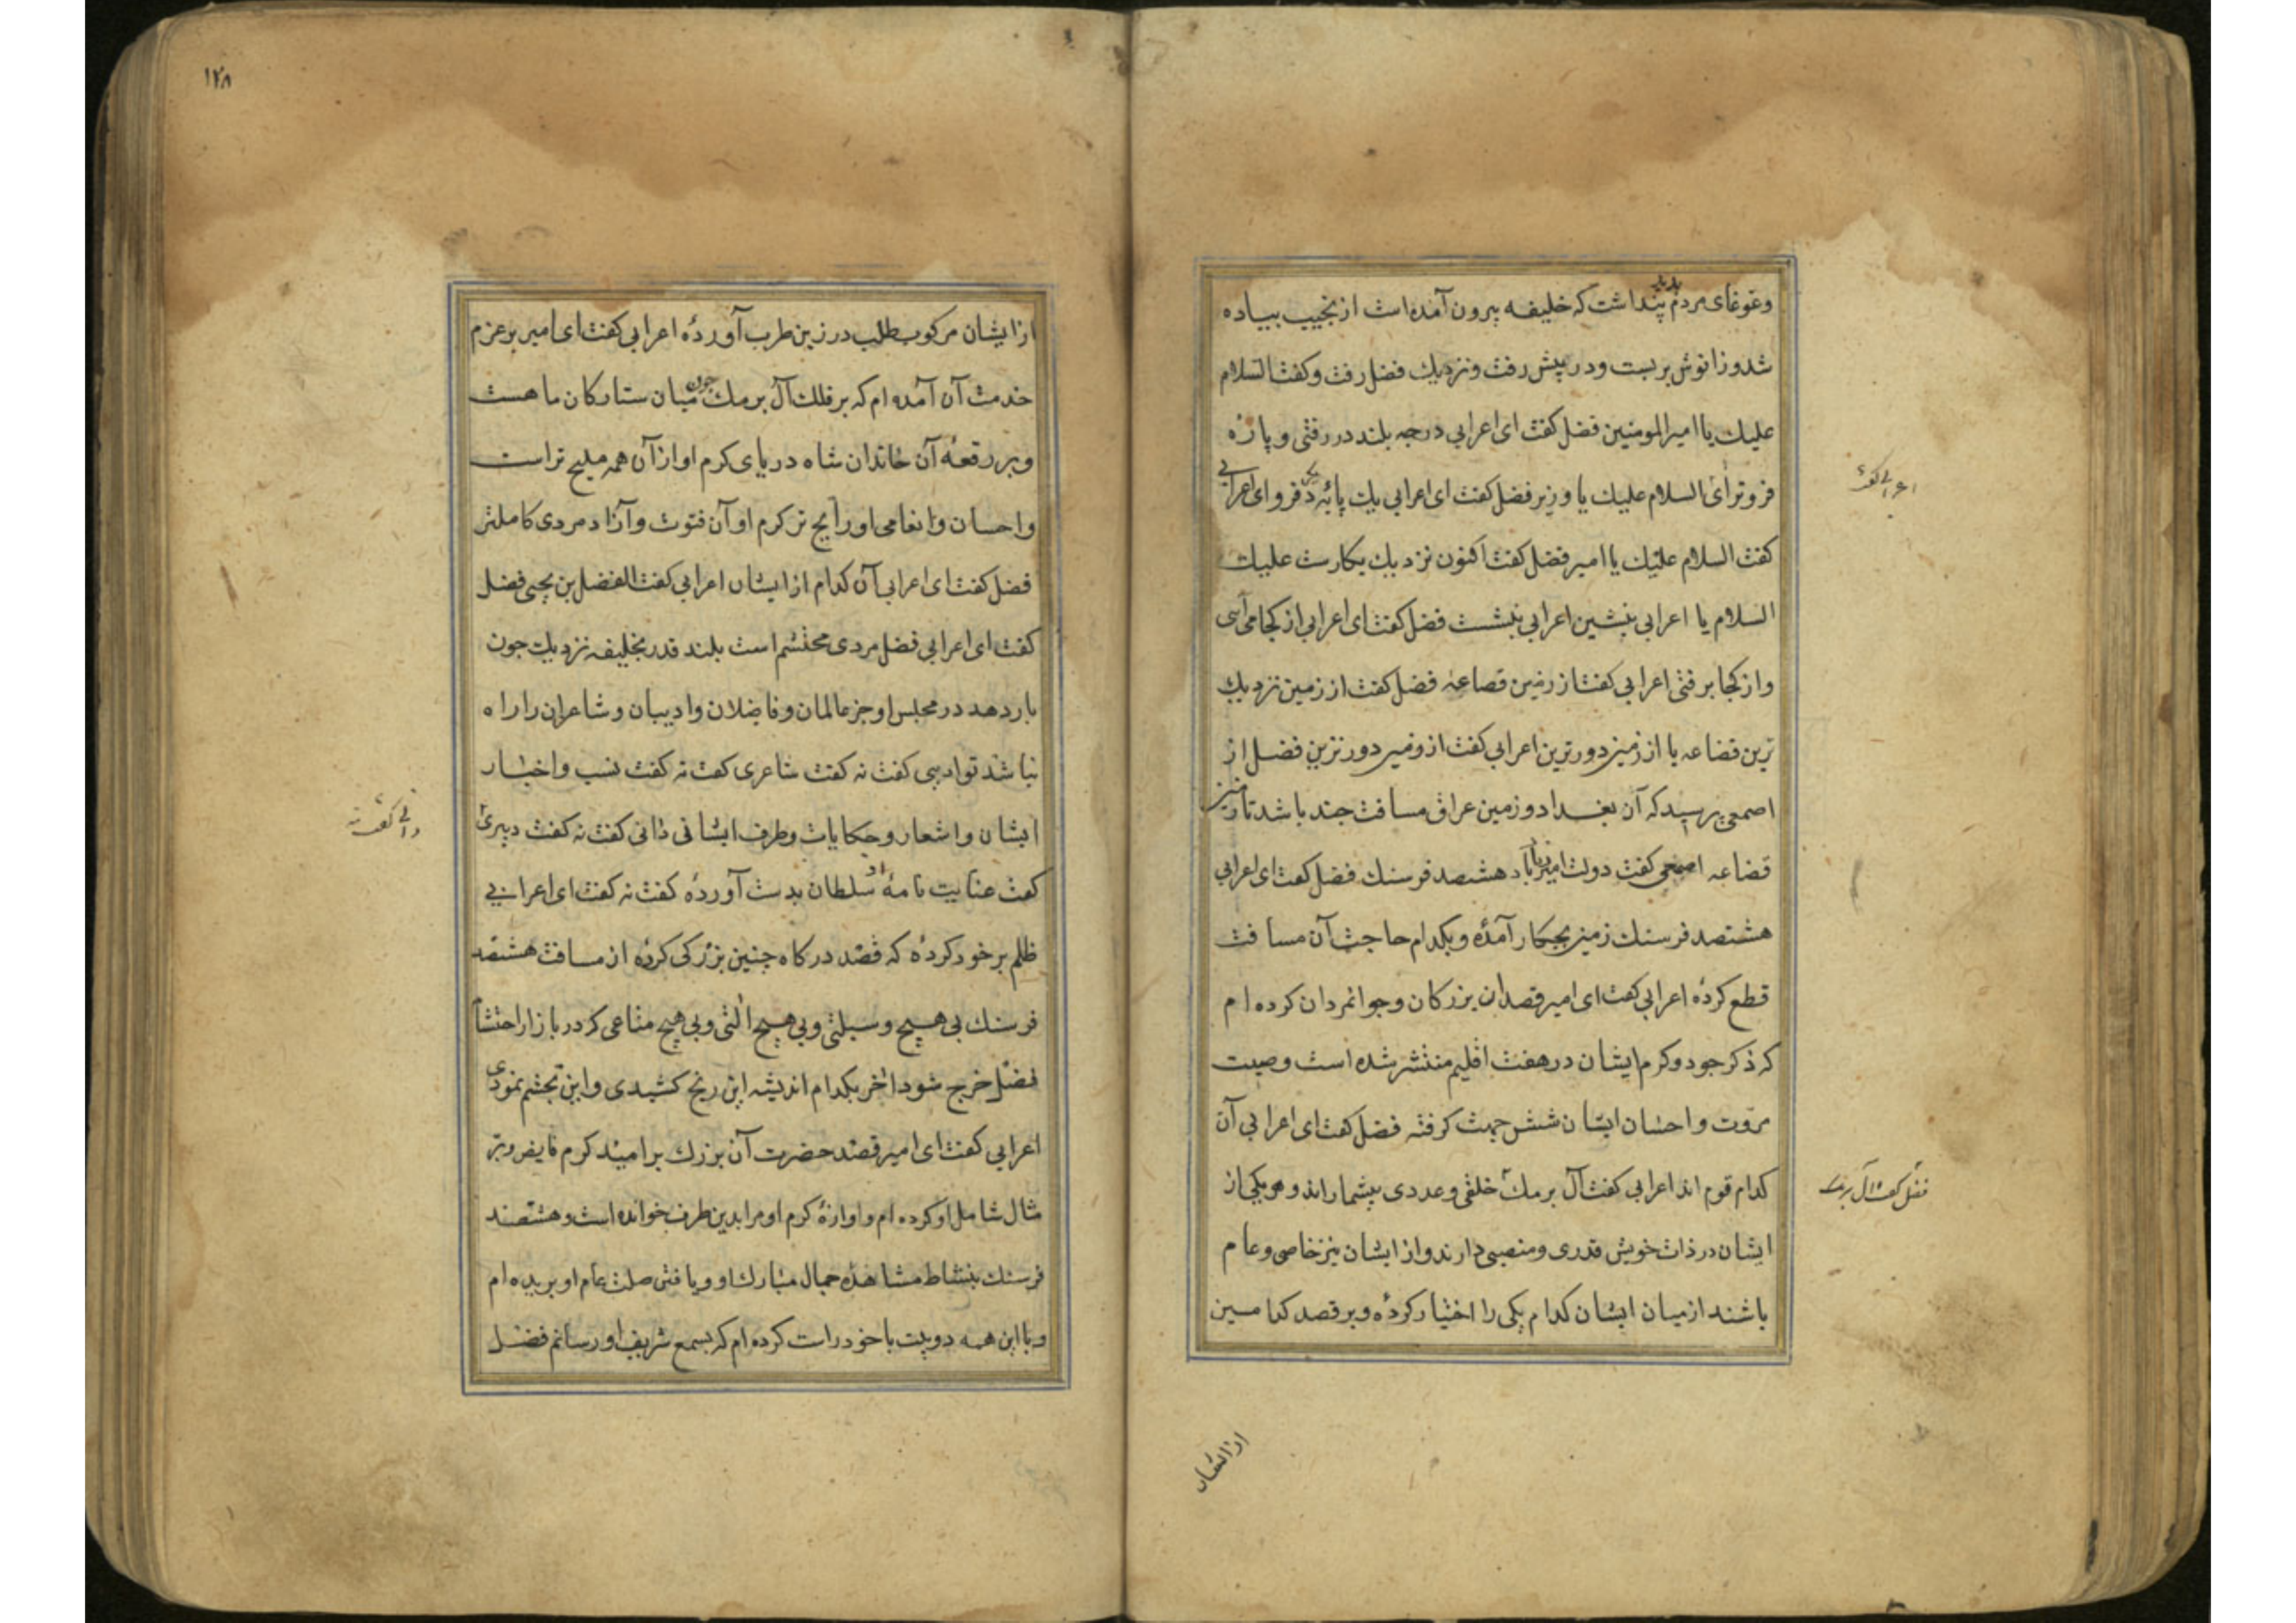 وغوغای مردم بدید پنداشت که خلیفه بیرون آمده است از نجیب بیاده
شد و زانوش بربست و در پیش رفت و نزدیك فضل رفت و کفت السلام
علیك یا امیر المومنین فضل کفت ای اعرابی درجه بلند در رفتی و پارهٔ
فروتر ای السلام علیك یا وزیر فضل کفت ای اعرابی یك پایهٔ دیکر فرو ای اعرابی
کفت السلام علیك یا امیر فضل کفت اکنون نزدیك بکارست علیك
السلام یا اعرابی بنشین اعرابی بنشست فضل کفت ای اعرابی از کجا می آیی
و از کجا برفتی اعرابی کفت از زمین قضاعه فضل کفت از زمین نزدیك
ترین قضاعه یا از زمین دورترین اعرابی کفت از زمین دورترین فضل از
اصمعی پرسید که آن بغداد و زمین عراق مسافت چند باشد تا زمین
قضاعه اصمعی کفت دولت امیر زیاد باد هشتصد فرسنك فضل کفت ای اعرابی
هشتصد فرسنك زمین بچکار آمدهٔ و بکدام حاجت آن مسافت
قطع کردهٔ اعرابی کفت ای امیر قصد آن بزرکان و جوانمردان کرده ام
که ذکر جود و کرم ایشان در هفت اقلیم منتشر شده است و صیت
مروت و احسان ایشان شش جهت کرفته فضل کفت ای اعرابی آن
کدام قوم اند اعرابی کفت آل برمك خلقی و عددی بیشمار اند و هر یکی از
ایشان در ذات خویش قدری و منصبی دارند و از ایشان نیز خاصی و عام
باشند از میان ایشان کدام یکی را اختیار کردهٔ و بر قصد کدامین
اعرابی کفت
فضل کفت آل برمك
از ایشان
۱۲۸
از ایشان مرکوب طلب در زین طرب آوردهٔ اعرابی کفت ای امیر بر عزم
خدمت آن آمده ام که بر فلك آل برمك چون میان ستارکان ماهست
و بر رقعهٔ آن خاندان شاه دریای کرم او از آن همه ملیح تر است
و احسان و انعامی او رایج تر کرم او آن فتوت و آزاد مردی کاملتر
فضل کفت ای اعرابی آن کدام از ایشان اعرابی کفت الفضل بن یحیی فضل
کفت ای اعرابی فضل مردی محتشم است بلند قدر بخلیفه نزدیك چون
بار دهد در مجلس او جز عالمان و فاضلان و ادیبان و شاعران را راه
نباشد تو ادیبی کفت نه کفت شاعری کفت نه کفت نسب و اخبار
ایشان و اشعار و حکایات و طرف ایشانی دانی کفت نه کفت دبیری
کفت عنایت نامهٔ از سلطان بدست آوردهٔ کفت نه کفت ای اعرابی
ظلم بر خود کردهٔ که قصد درکاه چنین بزرکی کردهٔ از مسافت هشتصد
فرسنك بی هیچ وسیلتی و بی هیچ التی و بی هیچ متاعی که در بازار احتشام
فضل خرج شود اخر بکدام اندیشه این رنج کشیدی و این تجشم نمودی
اعرابی کفت ای امیر قصد حضرت آن بزرك بر امید کرم فایض و بر
مثال شامل او کرده ام و اوازهٔ کرم او مرا بدین طرف خوانده است و هشتصد
فرسنك بنشاط مشاهدهٔ جمال مبارك او و یافتن صلت عام او بریده ام
و با این همه دو بیت با خود راست کرده ام که بسمع شریف او رسانم فضل
دانی کفت نه